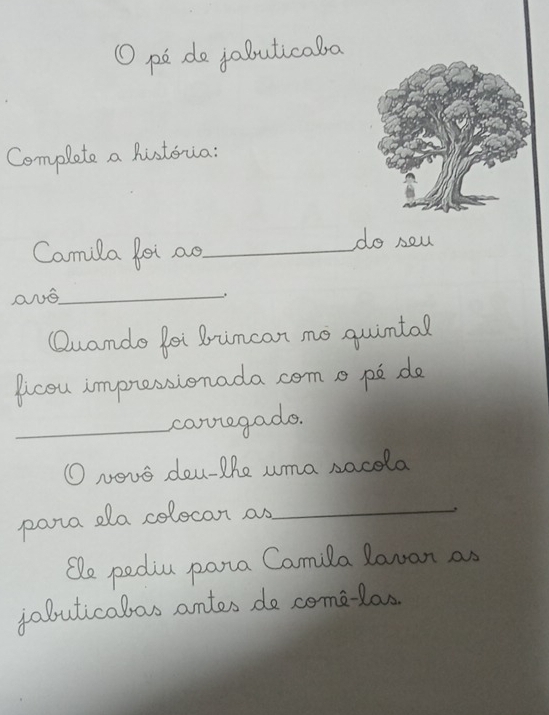 O pé de jabuticaba
Complete a história:
Camila foi ao____________do seu
avô____________.
Quando foi brincar no quintal
ficou impressionada com o pé de
____________carregado.
O vovô deu-lhe uma sacola
para ela colocar as____________.
Ele pediu para Camila lavar as
jabuticabas antes de comê-las.